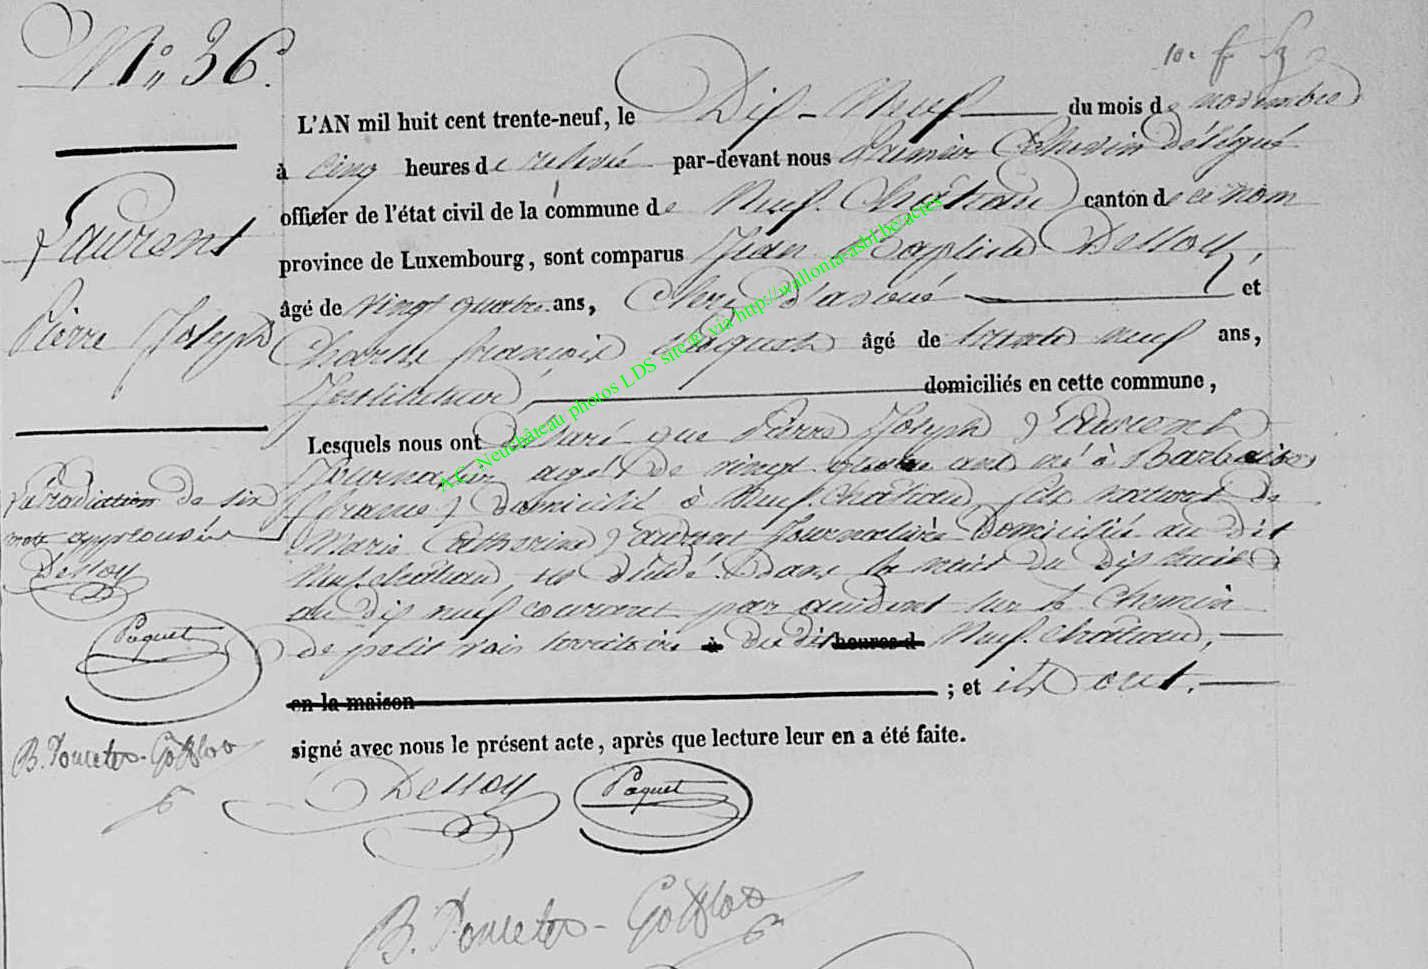 N° 36.
L'AN mil huit cent trente-neuf, le Dix-Neuf du mois de novembre
à cinq heures de relevée par-devant nous Premier Echevin délégué
officier de l'état civil de la commune de Neuf-Château canton de ce nom
province de Luxembourg, sont comparus Jean Baptiste Dessoy,
âgé de vingt quatre ans, Clerc d'avoué et
Charles françois Paquet âgé de trente neuf ans,
Instituteur, domiciliés en cette commune,
Lesquels nous ont déclaré que Pierre Joseph Laurent
Journalier agé de vingt ans né à
(france) domicilié à Neufchateau, fils naturel de
Marie Catherine Laurent Journalière domiciliée au dit
Neufchateau, est décédé dans la nuit du dix huit
au dix neuf courant par accident sur le chemin
de petit territoire à du dit heures d Neufchateau,
en la maison ; et ils ont
signé avec nous le présent acte, après que lecture leur en a été faite.
Dessoy
Paquet
B. Poncelet-
Laurent
Pierre Joseph
La radiation de six
mots approuvée
Dessoy
Paquet
B. Poncelet-
A.C. Neufchâteau photos LDS site @ via http://wallonia-asbl.be/actes